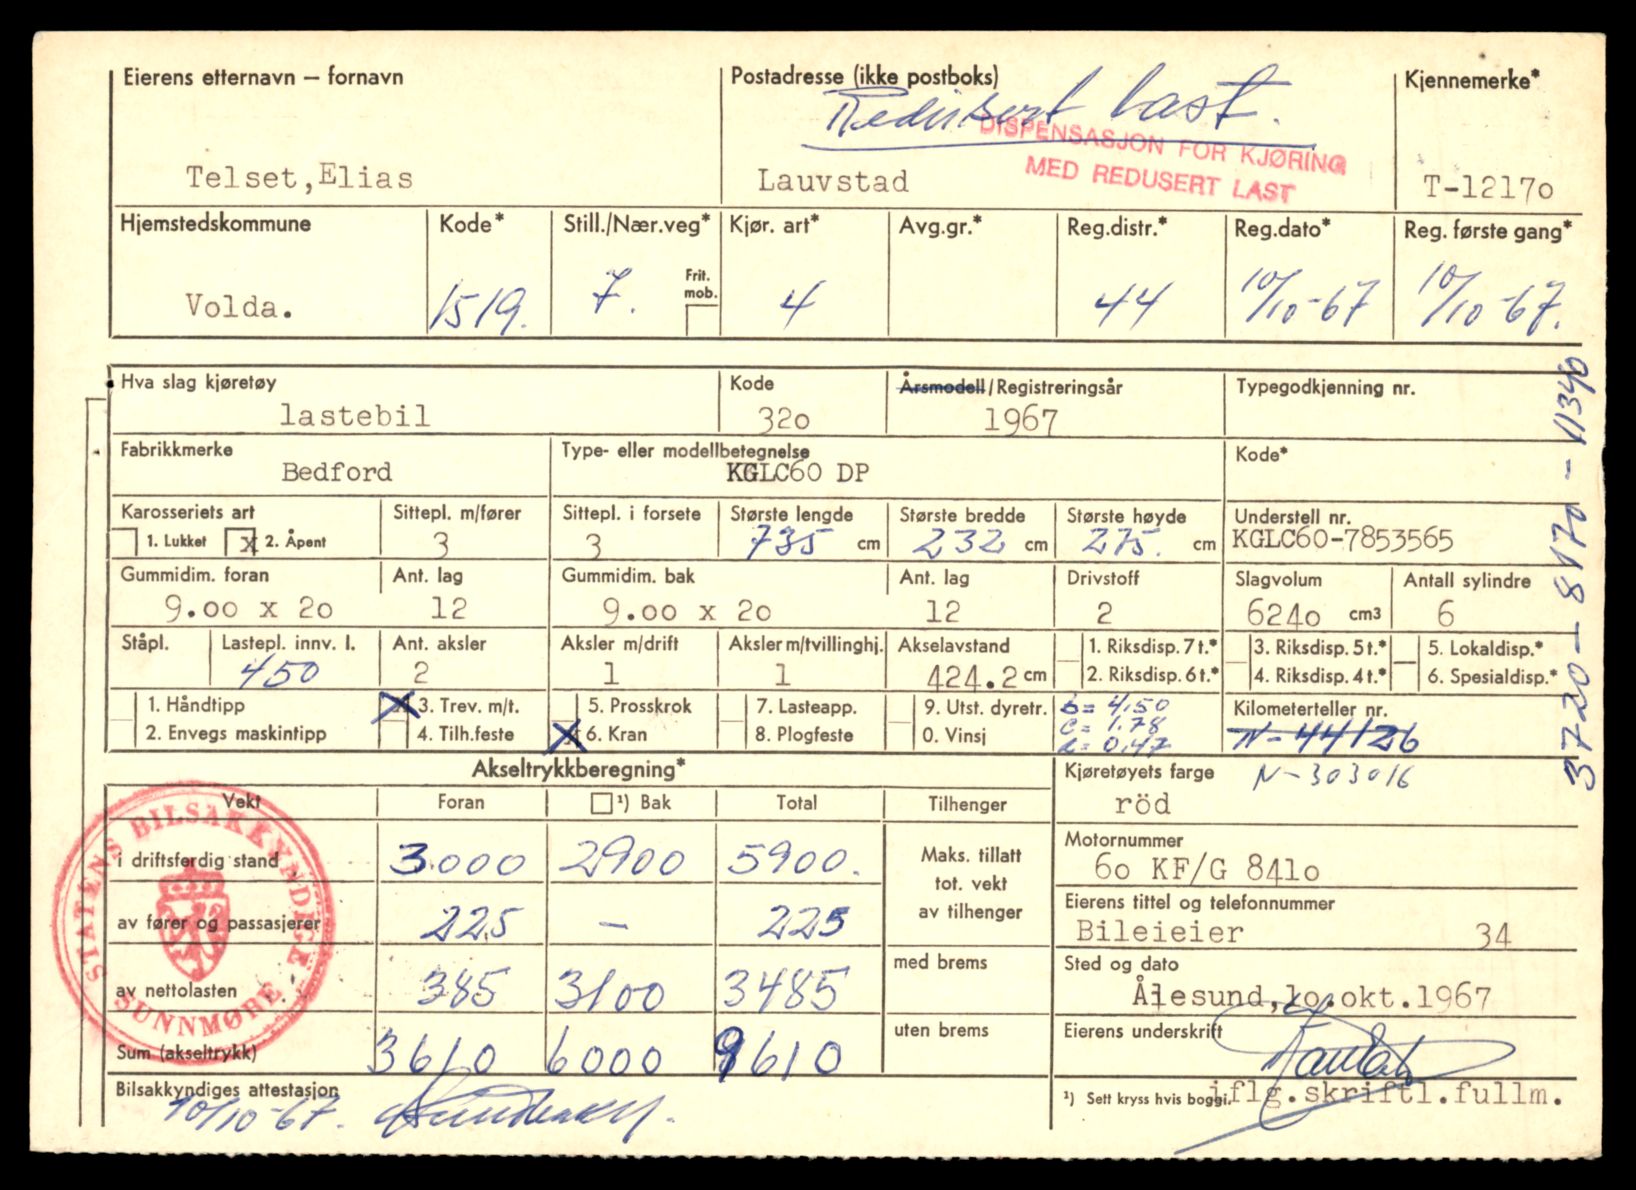 Eierens etternavn – fornavn
Telset, Elias
Postadresse (ikke postboks)
Redusert last.
DISPENSASJON FOR KJØRING
MED REDUSERT LAST
Lauvstad
Kjennemerke*
T-12170
Hjemstedskommune
Volda.
Kode*
1519.
Still./Nær.veg*
7.
Frit.
mob.
Kjør. art*
4
Avg.gr.*
Reg.distr.*
44
Reg.dato*
10/10-67
Reg. første gang*
10/10-67.
Hva slag kjøretøy
lastebil
Kode
320
Årsmodell/Registreringsår
1967
Typegodkjenning nr.
Fabrikkmerke
Bedford
Type- eller modellbetegnelse
KGLC60 DP
Kode*
Karosseriets art
1. Lukket x 2. Åpent
Sittepl. m/fører
3
Sittepl. i forsete
3
Største lengde
735 cm
Største bredde
232 cm
Største høyde
275. cm
Understell nr.
KGLC60-7853565
Gummidim. foran
9.00 x 20
Ant. lag
12
Gummidim. bak
9.00 x 20
Ant. lag
12
Drivstoff
2
Slagvolum
6240 cm3
Antall sylindre
6
Ståpl.
Lastepl. innv. l.
450
Ant. aksler
2
Aksler m/drift
1
Aksler m/tvillinghj.
1
Akselavstand
424.2 cm
1. Riksdisp. 7 t.*
2. Riksdisp. 6 t.*
3. Riksdisp. 5 t.*
4. Riksdisp. 4 t.*
5. Lokaldisp.*
6. Spesialdisp.*
1. Håndtipp
2. Envegs maskintipp
x 3. Trev. m/t.
4. Tilh.feste
5. Prosskrok
x 6. Kran
7. Lasteapp.
8. Plogfeste
9. Utst. dyretr.
0. Vinsj
b = 4,50
c = 1,78
a = 0,47
Kilometerteller nr.
N-44126
N-303016
3720-8170-11340
Akseltrykkberegning*
Vekt
Foran
¹) Bak
Total
Tilhenger
i driftsferdig stand
3000
2900
5900.
av fører og passasjerer
225
–
225
av nettolasten
385
3100
3485
Sum (akseltrykk)
3610
6000
9610
Maks. tillatt
tot. vekt
av tilhenger
med brems
uten brems
STATENS BILSAKKYNDIGE
SUNNMØRE
Bilsakkyndiges attestasjon
10/10-67.
Kjøretøyets farge
röd
Motornummer
60 KF/G 8410
Eierens tittel og telefonnummer
Bileieier 34
Sted og dato
Ålesund, 10.okt.1967
Eierens underskrift
¹) Sett kryss hvis boggi.
iflg.skriftl.fullm.